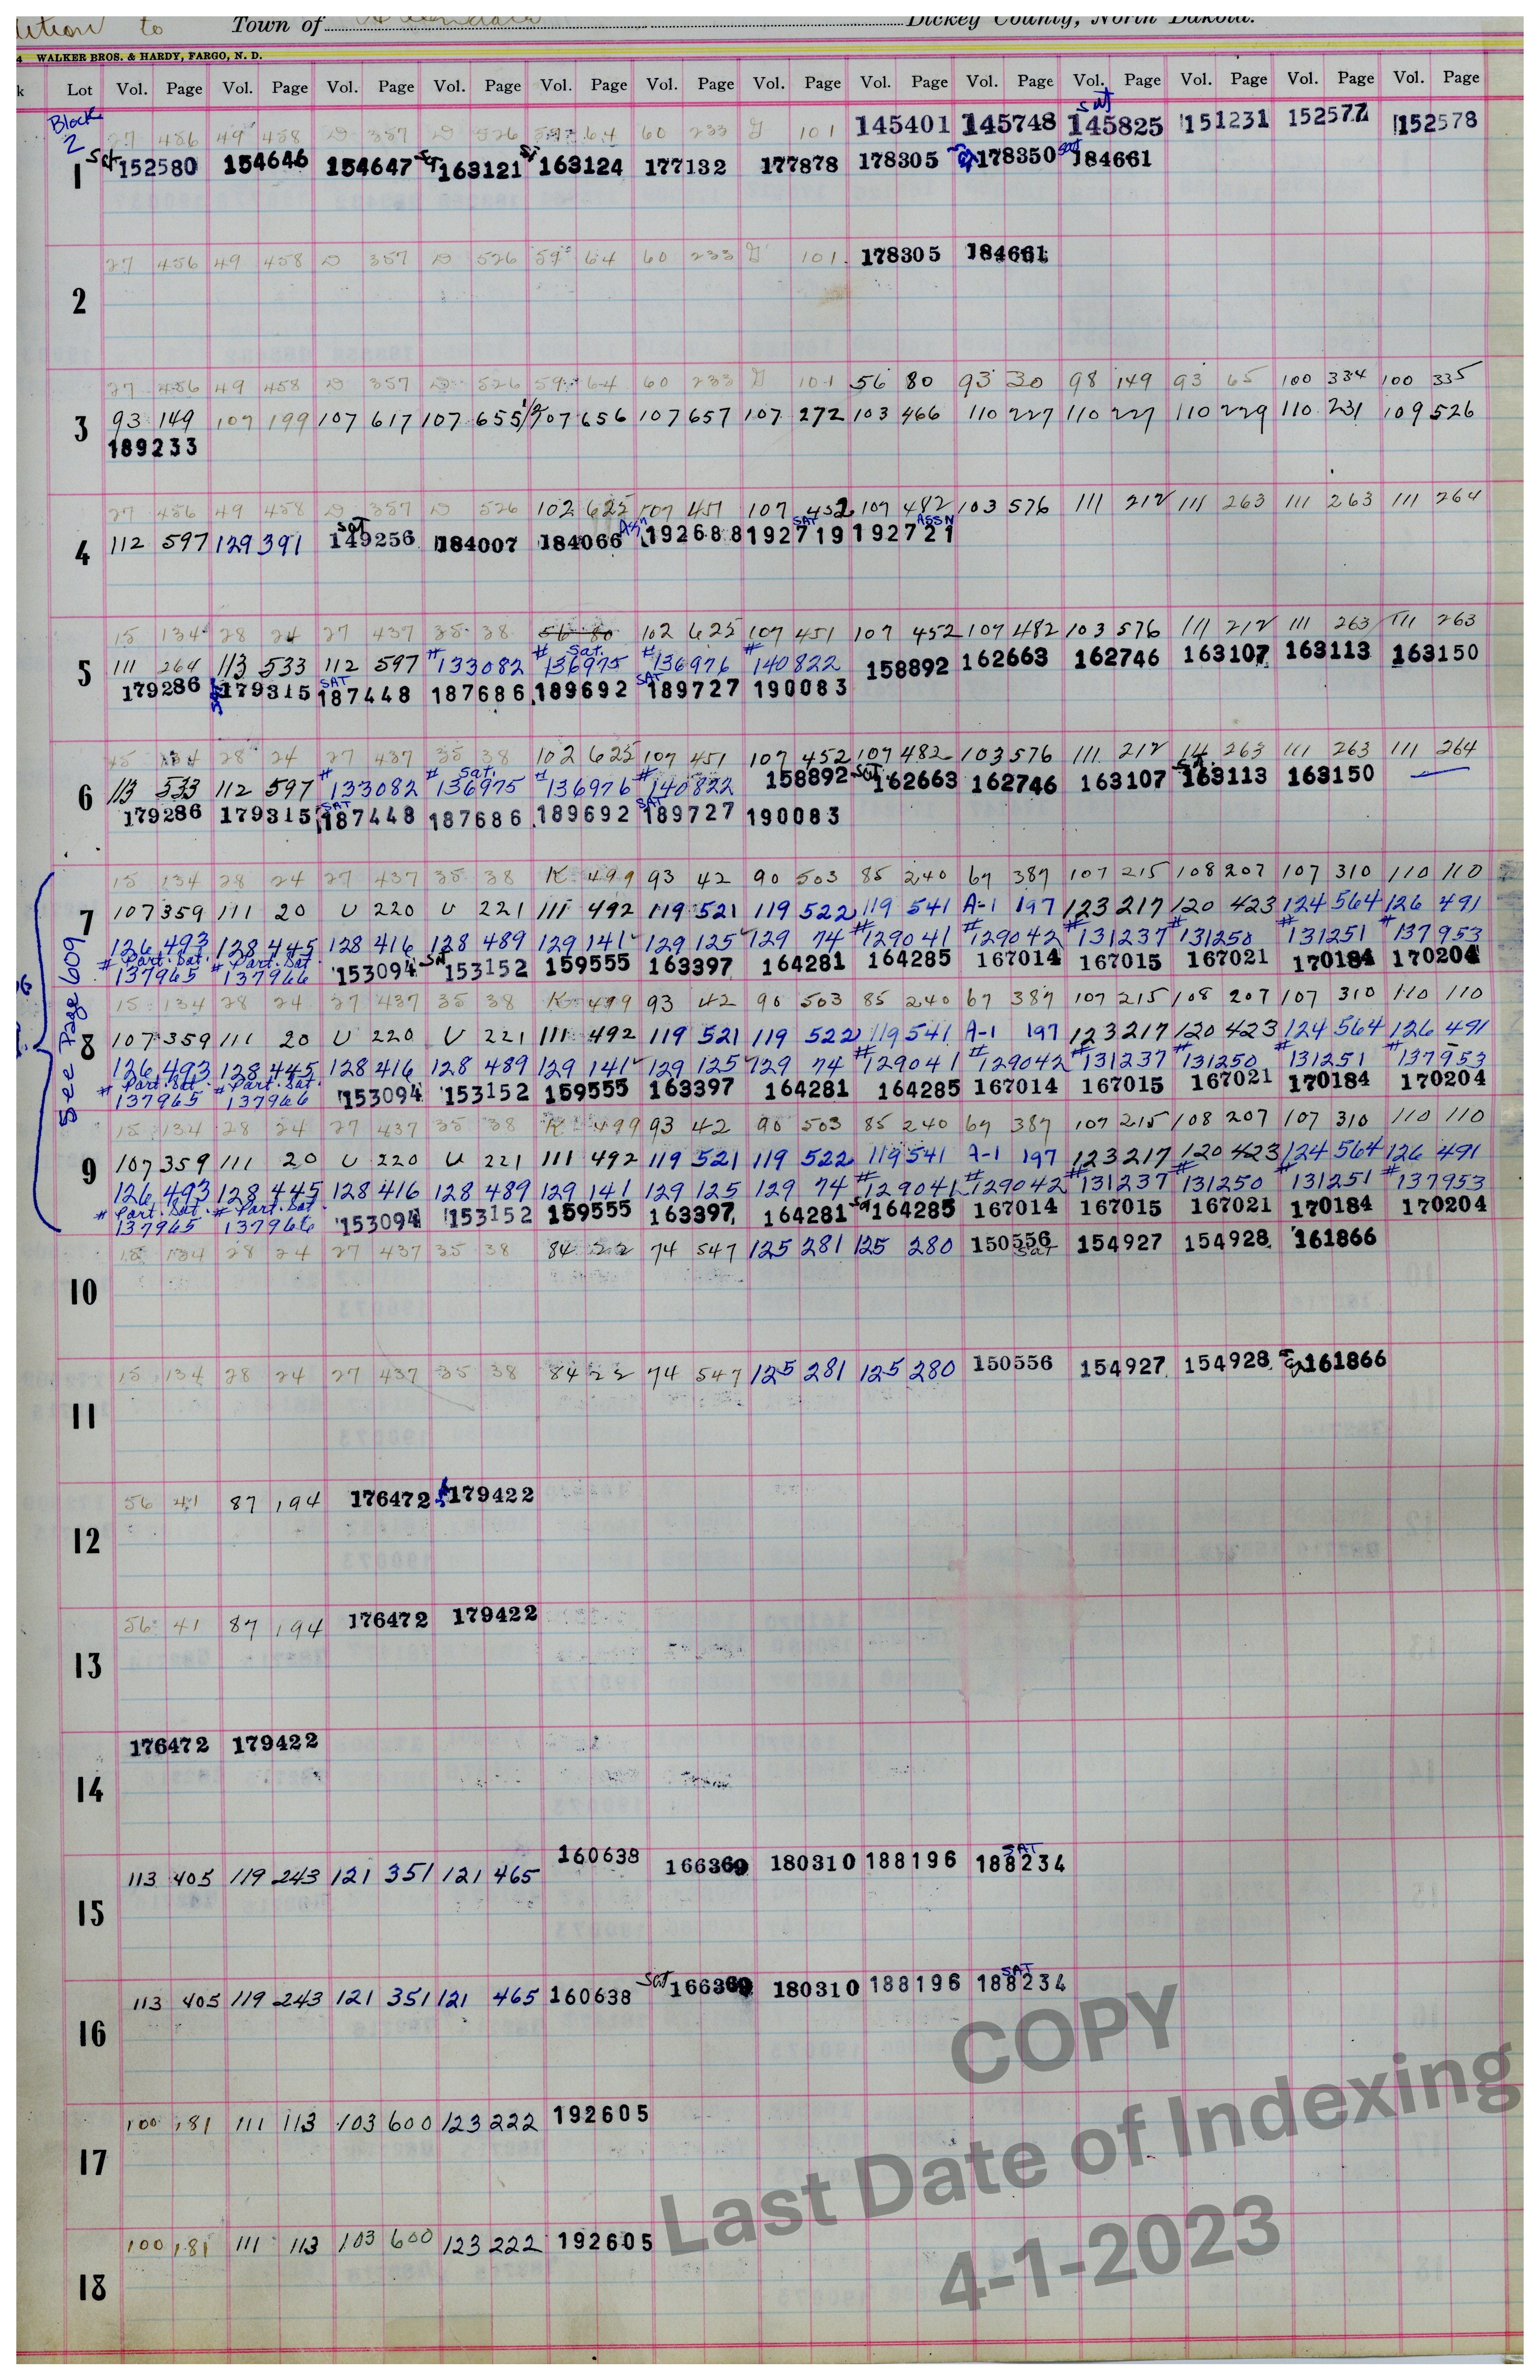 Town of Dickey County, North Dakota.
4 WALKER BROS. & HARDY, FARGO, N. D.
k Lot Vol. Page Vol. Page Vol. Page Vol. Page Vol. Page Vol. Page Vol. Page Vol. Page Vol. Page Vol. Page Vol. Page Vol. Page Vol. Page
Block 2
sat
27 456 49 458 D 357 D 526 59 64 60 233 101 145401 145748 145825 151231 152577 152578
1 Sat 152580 154646 154647 Sat 163121 163124 177132 177878 178305 178350 sat 184661
27 456 49 458 D 357 D 526 59 64 60 233 101 178305 184661
2
27 456 49 458 D 357 D 526 59 64 60 233 101 56 80 93 30 98 149 93 65 100 334 100 335
3 93 149 107 199 107 617 107 655 1/2 107 656 107 657 107 272 103 466 110 227 110 227 110 229 110 231 109 526
189233
27 456 49 458 D 357 D 526 102 625 107 451 107 452 107 482 103 576 111 212 111 263 111 263 111 264
4 112 597 129 391 sat 149256 184007 184066 Assn 192688 192719 SAT 192721 ASSN
15 134 28 24 27 437 35 38 56 80 102 625 107 451 107 452 107 482 103 576 111 212 111 263 111 263
5 111 264 113 533 112 597 # 133082 # Sat. 136975 # 136976 # 140822 158892 162663 162746 163107 163113 163150
179286 179315 SAT 187448 187686 189692 SAT 189727 190083
15 134 28 24 27 437 35 38 102 625 107 451 107 452 107 482 103 576 111 212 111 263 111 263 111 264
6 113 533 112 597 # 133082 # Sat. 136975 # 136976 # 140822 158892 Sat. 162663 162746 163107 Sat. 163113 163150
179286 179315 SAT 187448 187686 189692 SAT 189727 190083
See Page 609
15 134 28 24 27 437 35 38 K 499 93 42 90 503 85 240 67 387 107 215 108 207 107 310 110 110
7 107 359 111 20 U 220 U 221 111 492 119 521 119 522 119 541 A-1 197 123 217 120 423 124 564 126 491
126 493 128 445 128 416 128 489 129 141 129 125 129 74 # 129041 # 129042 # 131237 # 131250 # 131251 # 137953
# Part. Sat. 137965 # Part. Sat. 137966 153094 Sat 153152 159555 163397 164281 164285 167014 167015 167021 170184 170204
15 134 28 24 27 437 35 38 K 499 93 42 90 503 85 240 67 387 107 215 108 207 107 310 110 110
8 107 359 111 20 U 220 U 221 111 492 119 521 119 522 119 541 A-1 197 123 217 120 423 124 564 126 491
126 493 128 445 128 416 128 489 129 141 129 125 129 74 # 129041 # 129042 # 131237 # 131250 # 131251 # 137953
# Part. Sat. 137965 # Part. Sat. 137966 153094 153152 159555 163397 164281 164285 167014 167015 167021 170184 170204
15 134 28 24 27 437 35 38 K 499 93 42 90 503 85 240 67 387 107 215 108 207 107 310 110 110
9 107 359 111 20 U 220 U 221 111 492 119 521 119 522 119 541 A-1 197 123 217 120 423 124 564 126 491
126 493 128 445 128 416 128 489 129 141 129 125 129 74 # 129041 # 129042 # 131237 # 131250 # 131251 # 137953
# Part. Sat. 137965 # Part. Sat. 137966 153094 153152 159555 163397 164281 Sat 164285 167014 167015 167021 170184 170204
15 134 28 24 27 437 35 38 84 22 74 547 125 281 125 280 150556 Sat 154927 154928 161866
10
15 134 28 24 27 437 35 38 84 22 74 547 125 281 125 280 150556 154927 154928 161866
11
56 41 87 194 176472 179422
12
56 41 87 194 176472 179422
13
176472 179422
14
113 405 119 243 121 351 121 465 160638 166369 180310 188196 SAT 188234
15
113 405 119 243 121 351 121 465 160638 Sat 166369 180310 188196 SAT 188234
16
100 181 111 113 103 600 123 222 192605
17
100 181 111 113 103 600 123 222 192605
18
COPY
Last Date of Indexing
4-1-2023